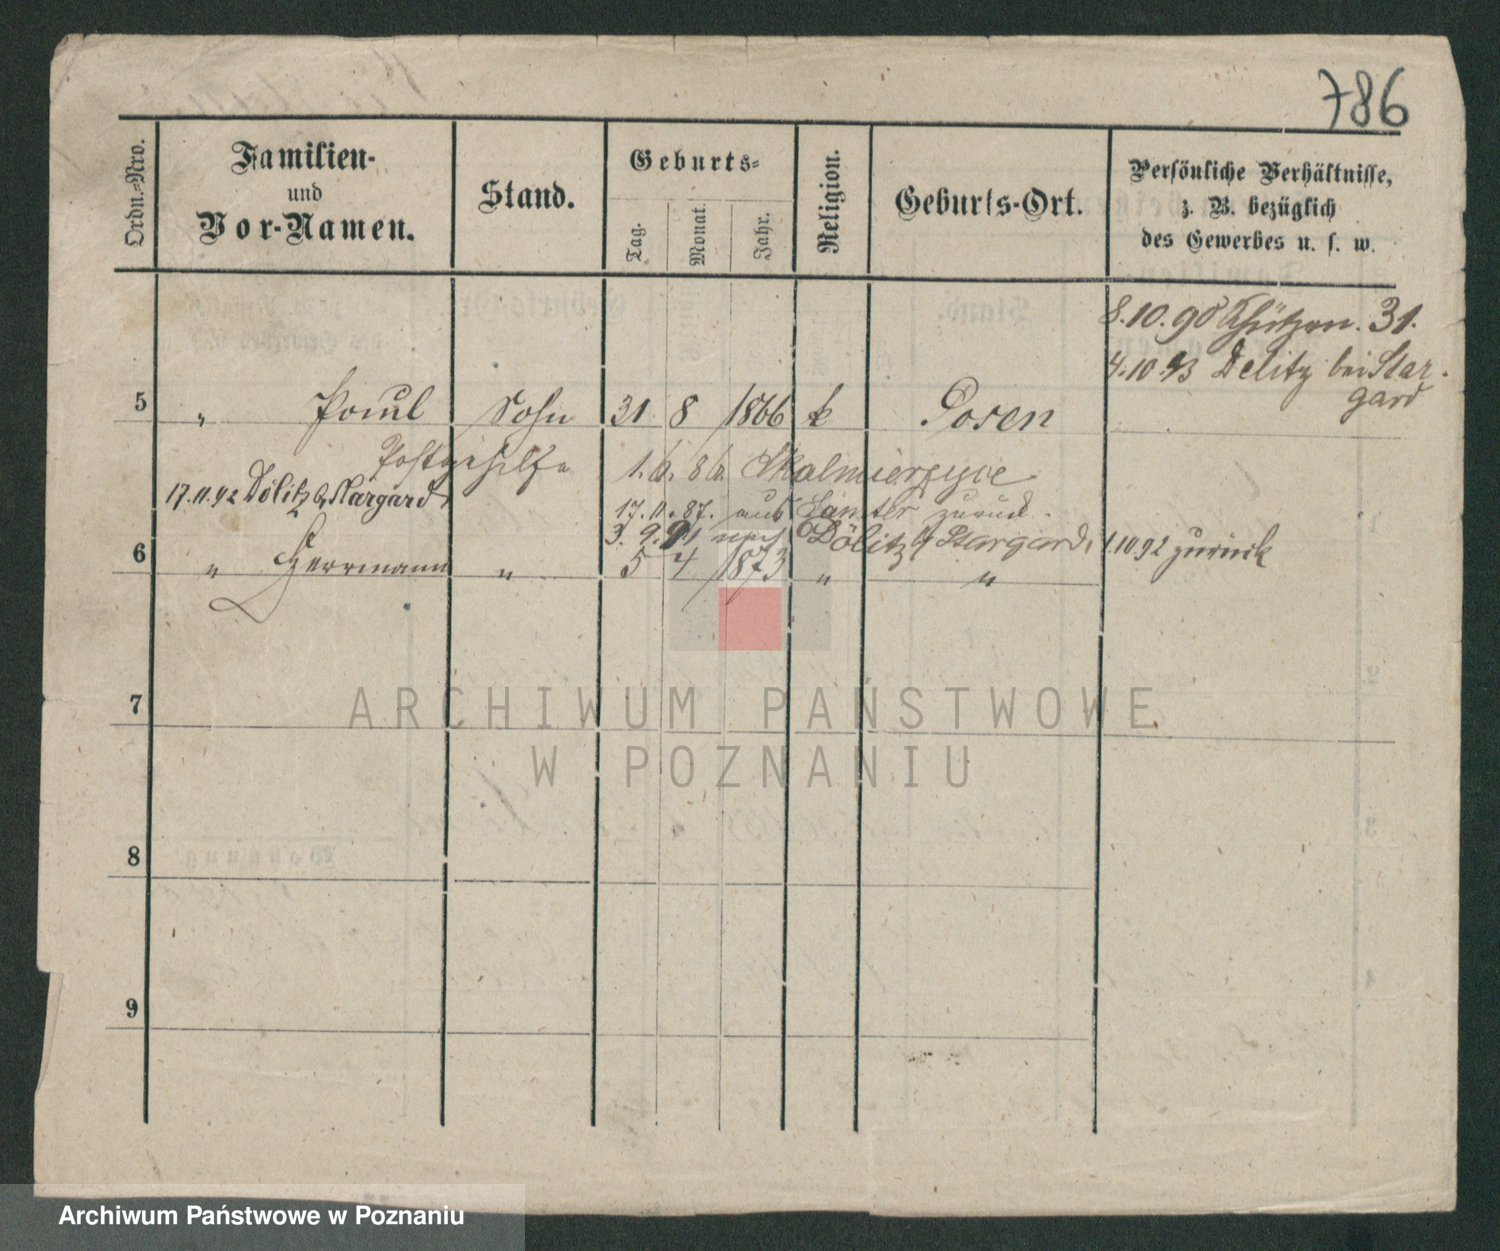 786
Ordn.-Nro.
Familien-
und
Vor-Namen.
Stand.
Geburts-
Tag.
Monat.
Jahr.
Religion.
Geburts-Ort.
Persönliche Verhältnisse,
z. B. bezüglich
des Gewerbes u. s. w.
8.10.90 Schützen. 31.
4.10.93 Delitz bei Star-
gard
5 " Paul Sohn 31 8 1866 k Posen
Postgehilfe 1.6.86. Skalmierzyce
17.11.92 Dölitz b/Stargard
17.11.87. aus Samter zurück.
3.9.91 nach Dölitz b/ Stargard, 1.10.92 zurück
6 " Herrmann " 5 4 1873 " "
7
ARCHIWUM PAŃSTWOWE
W POZNANIU
8
9
Archiwum Państwowe w Poznaniu